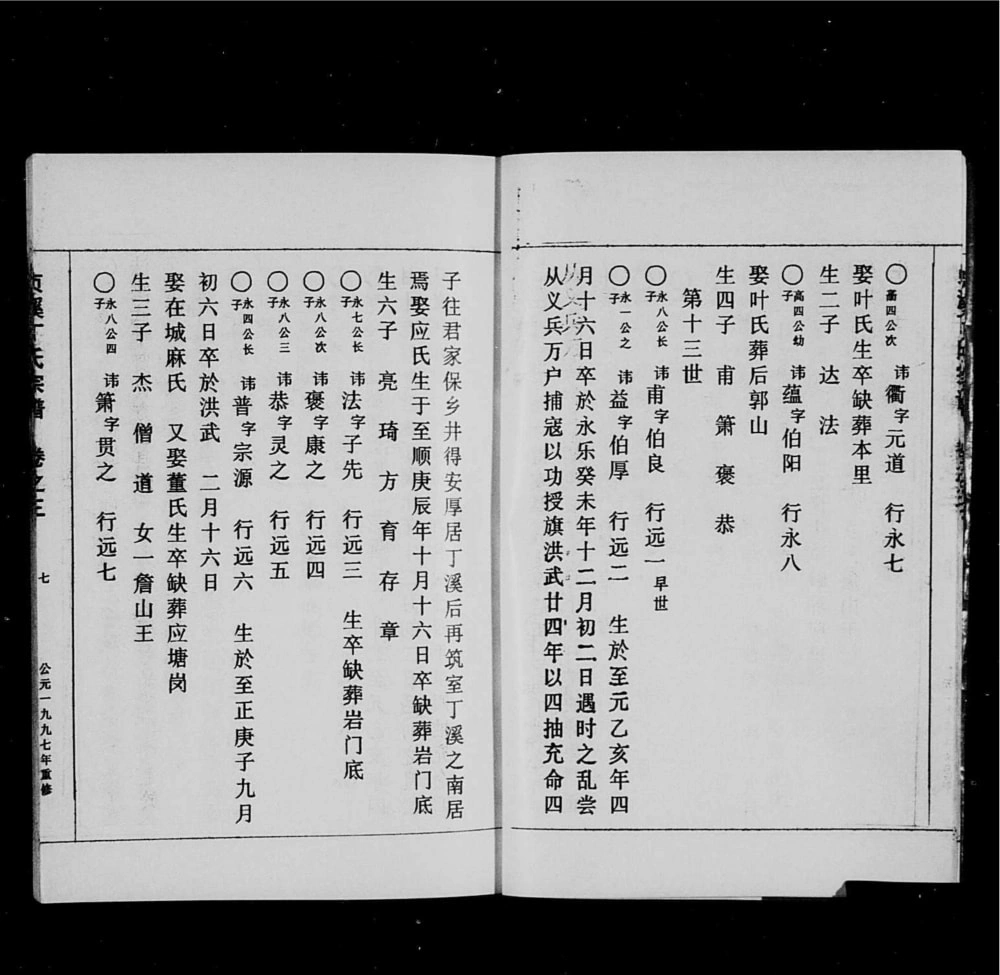 〇高四公次子 讳衢字元道 行永七
娶叶氏生卒缺葬本里
生二子 达 法
〇高四公幼子 讳蕴字伯阳 行永八
娶叶氏葬后郭山
生四子 甫 箫 褒 恭
第十三世
〇永八公长子 讳甫字伯良 行远一早世
〇永一公之子 讳益字伯厚 行远二 生於至元乙亥年四
月十六日卒於永乐癸未年十二月初二日遇时之乱尝
从义兵万户捕寇以功授旗洪武廿四年以四抽充命四
子往君家保乡井得安厚居丁溪后再筑室丁溪之南居
焉娶应氏生于至顺庚辰年十月十六日卒缺葬岩门底
生六子 亮 琦 方 育 存 章
〇永七公长子 讳法字子先 行远三 生卒缺葬岩门底
〇永八公次子 讳褒字康之 行远四
〇永八公三子 讳恭字灵之 行远五
〇永四公长子 讳普字宗源 行远六 生於至正庚子九月
初六日卒於洪武 二月十六日
娶在城麻氏 又娶董氏生卒缺葬应塘岗
生三子 杰 僧 道 女一詹山王
〇永八公四子 讳箫字贯之 行远七
溪丁氏宗谱 卷之三 七 公元一九九七年重修